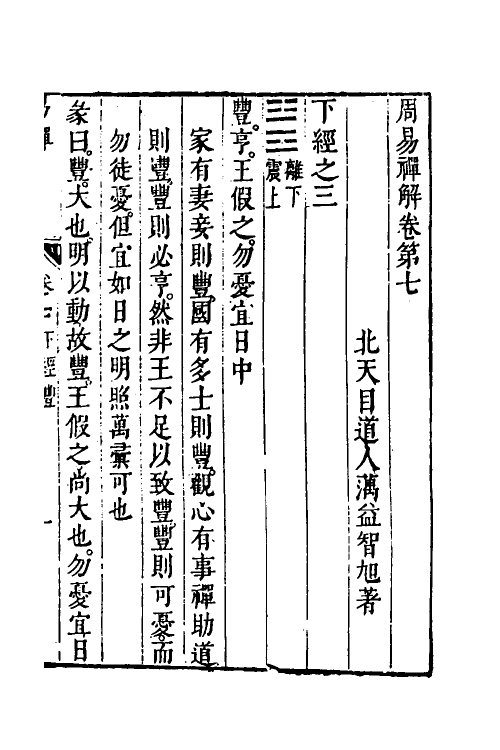 周易禪解卷第七
北天目道人蕅益智旭著
下經之三
離下
震上
豐。亨。王假之。勿憂宜日中
家有妻妾則豐。國有多士則豐。觀心有事禪助道
則豐。豐則必亨。然非王不足以致豐。豐則可憂。而
勿徒憂。但宜如日之明照萬彙可也
彖曰。豐。大也。明以動。故豐。王假之。尚大也。勿憂宜日
卷七下經豐 一